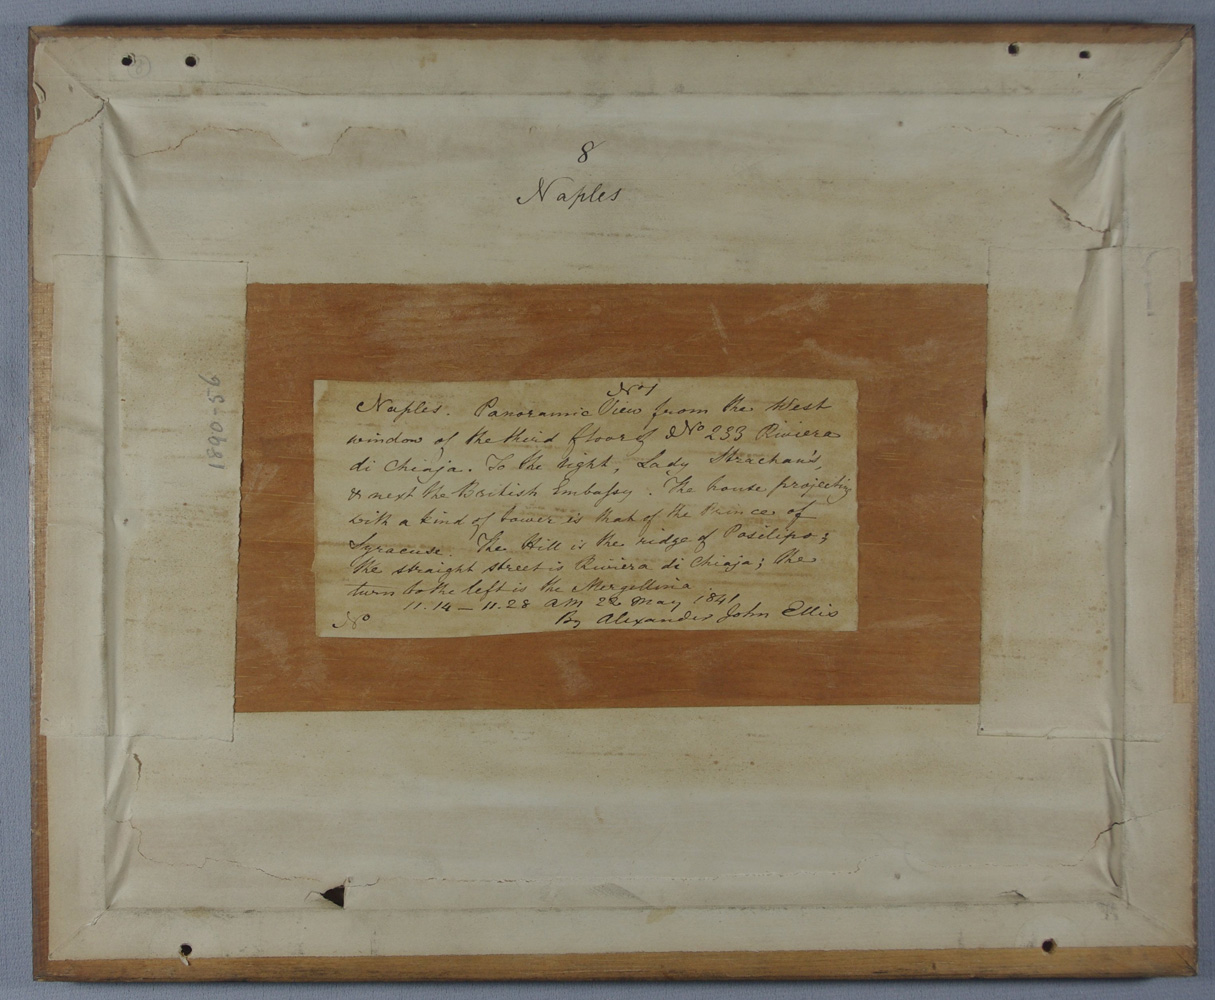 8
Naples
1890-56
No 1
Naples. Panoramic View from the West
window of the third floor of No 233 Riviera
di Chiaja. To the right, Lady Strachan's,
& next the British Embassy. The house projecting
with a kind of tower is that of the Prince of
Syracuse. The Hill is the ridge of Posilipo;
the straight street is Riviera di Chiaja; the
turn to the left is the Mergellina
11.14 — 11.28 AM 22 May 1841
No By Alexander John Ellis